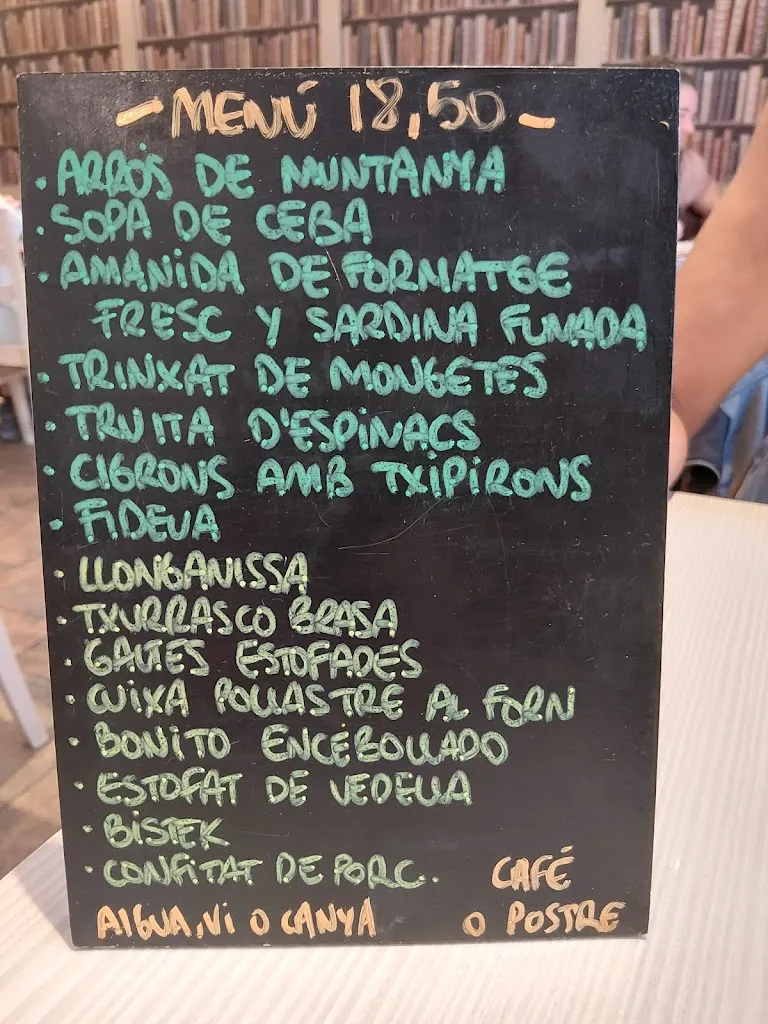 - MENÚ 18,50 -
· ARRÒS DE MUNTANYA
· SOPA DE CEBA
· AMANIDA DE FORMATGE
FRESC Y SARDINA FUMADA
· TRINXAT DE MONGETES
· TRUITA D'ESPINACS
· CIGRONS AMB TXIPIRONS
· FIDEUA
· LLONGANISSA
· TXURRASCO BRASA
· GALTES ESTOFADES
· CUIXA POLLASTRE AL FORN
· BONITO ENCEBOLLADO
· ESTOFAT DE VEDELLA
· BISTEK
· CONFITAT DE PORC.
CAFÉ
AIGUA, VI O CANYA
O POSTRE